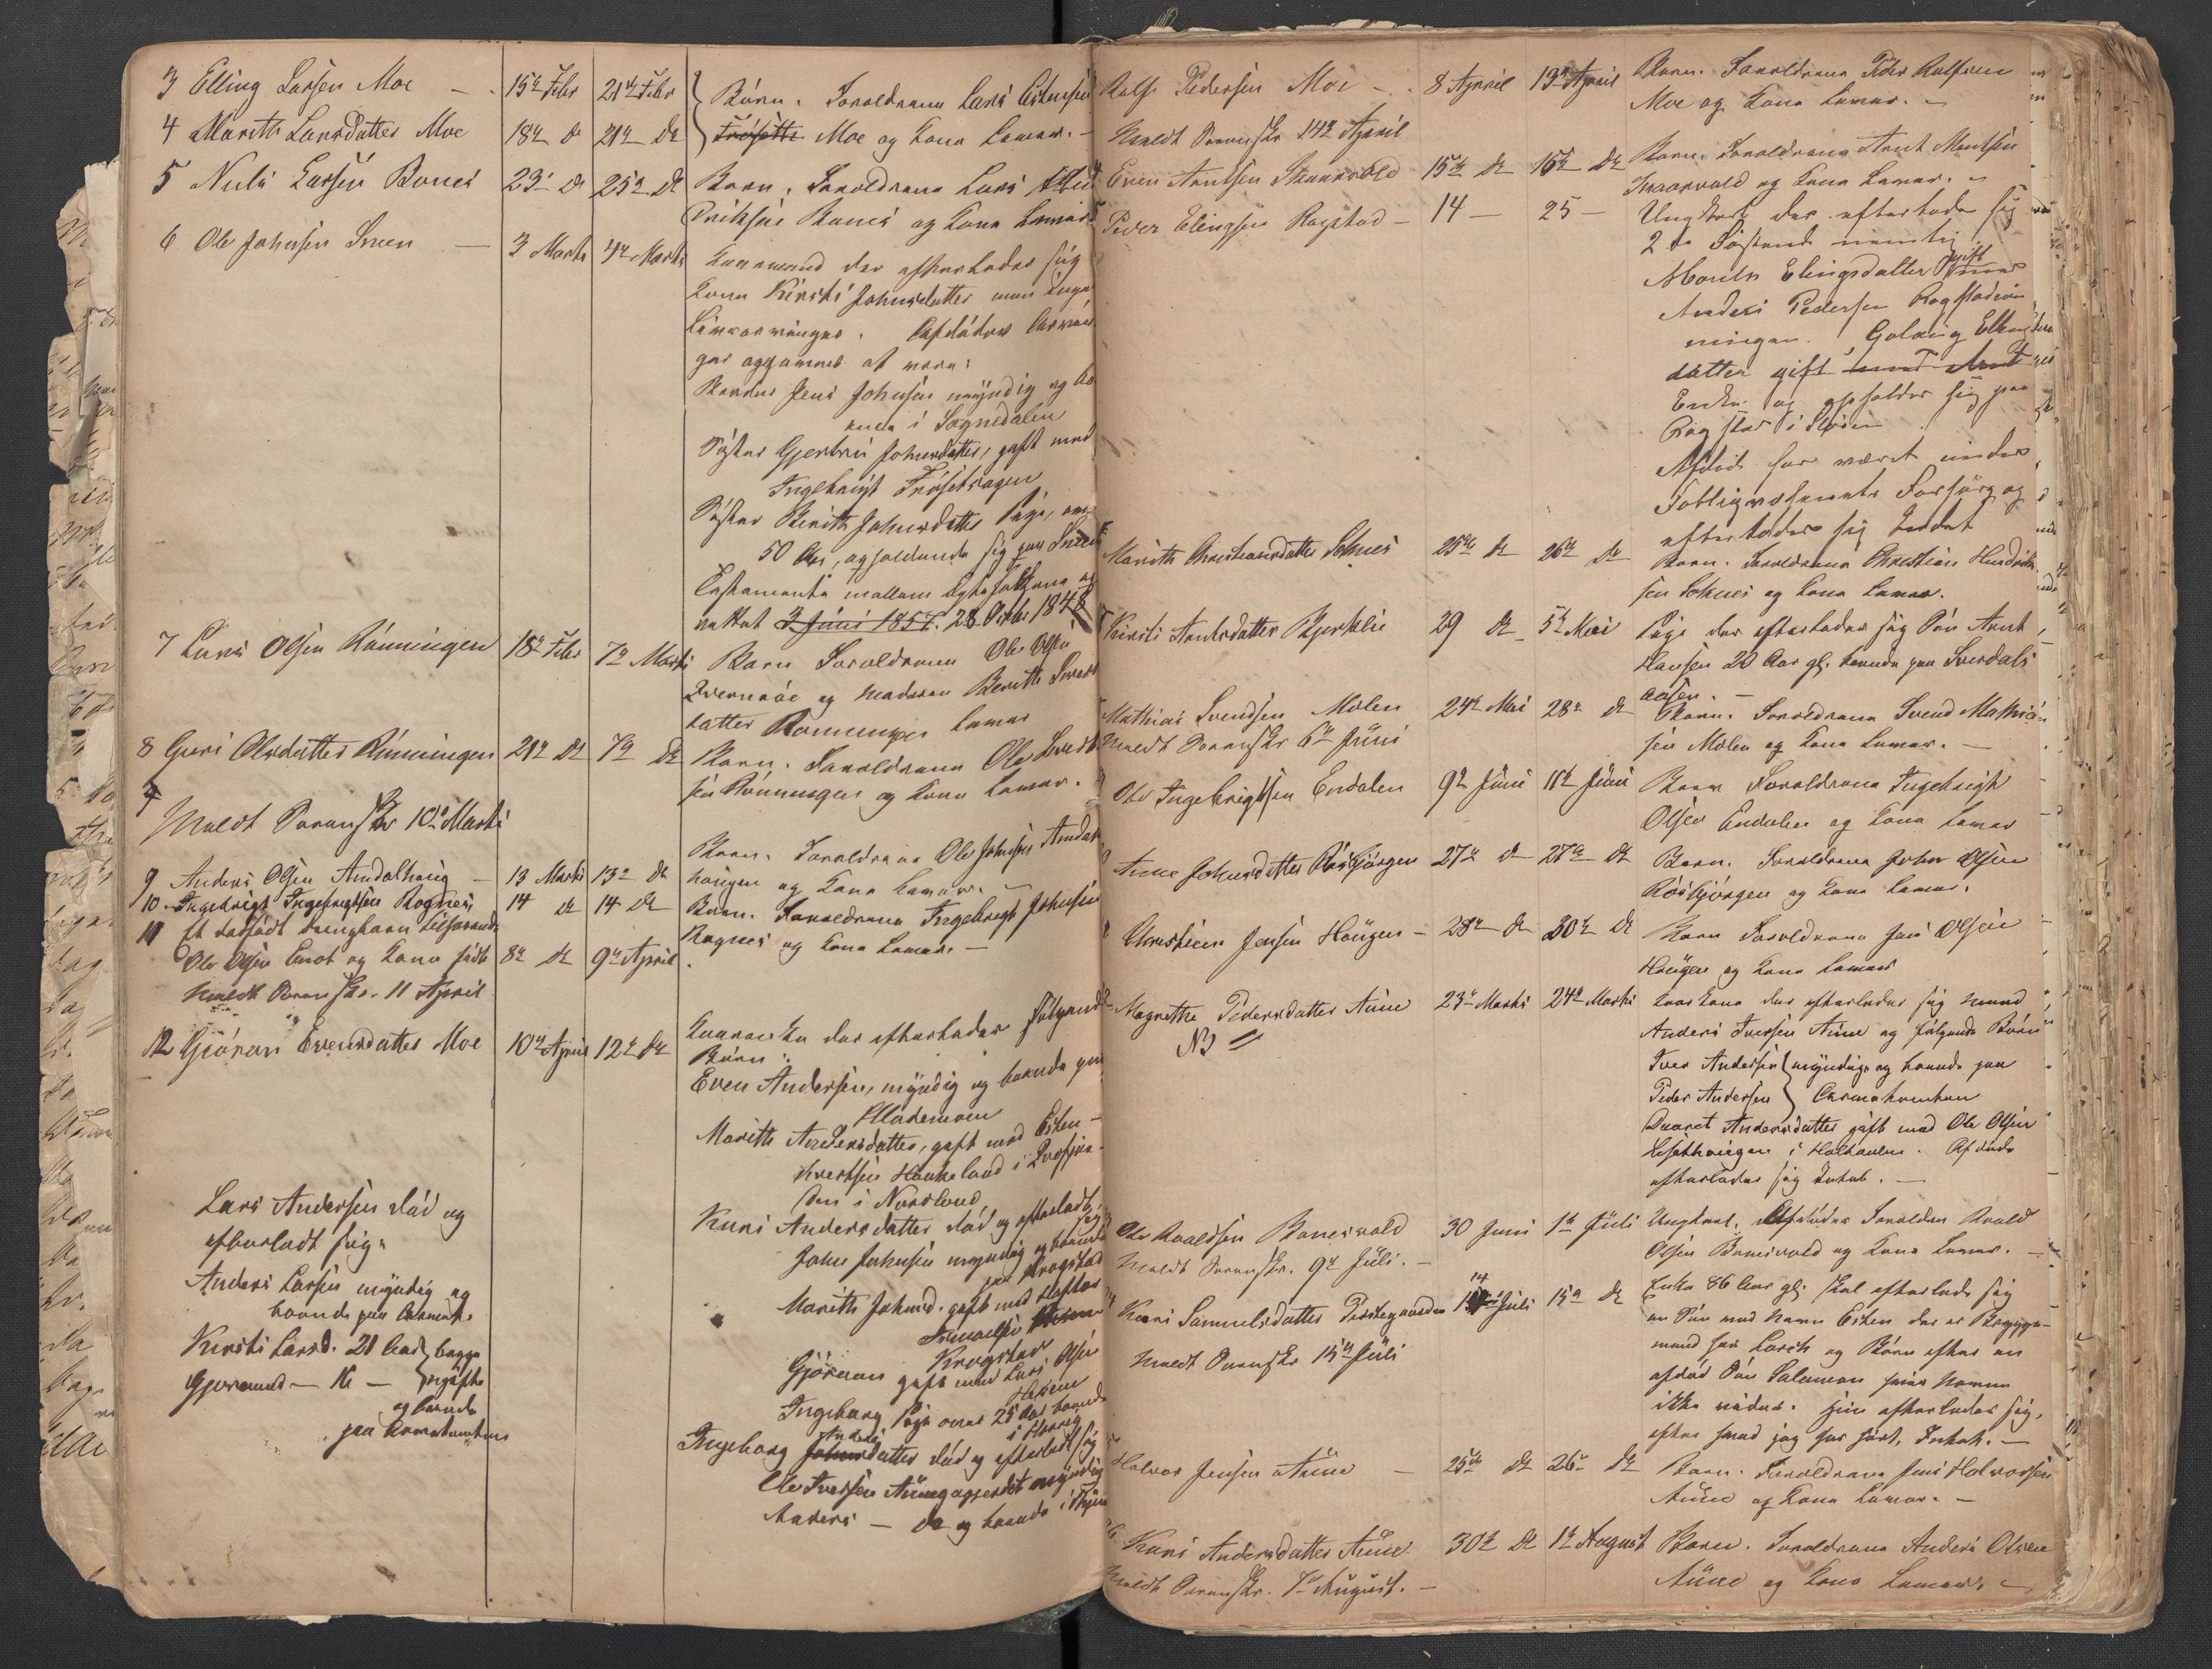 3 Elling Larsen Moe — 15de Febr 21de Febr
4 Marith Larsdatter Moe 18de do 21de do
Børn. Foreldrene Lars Estensen
Frøsette Moe og Kone Lever. —
5 Nils Larsen Bones 23de do 25de do Barn. Foreldrene Lars
Eriksen Bones og Kone Lever
6 Ole Johnsen Snuen — 3 Marts 4de Marts
Kaarmand der efterlader sig
Kone Kirsti Johnsdatter men ingen
Livsarvinger. Afdødes Arvin
ger opgaaves at være:
Broder Jens Johnsen myndig og bo
ende i Sognedalen
Søster Gjertru Johnsdatter, gift med
Ingebrigt Frøsethagen
Søster Berith Johnsdatter Pige, over
50 Aar, opholdende sig paa Snuen
Testamente mellem Egtefolkene er
rettet 2 Juni 1857. 28 Octbr 1848
7 Lars Olsen Rønningen 18de Febr 7de Marts Barn Foreldrene Ole Olsen
og Moderen Berith Sivert
datter Rønningen Lever
8 Guri Olsdatter Rønningen 21de do 7de do Barn. Foreldrene Ole Sivert
sen Rønningen og Kone Lever.
Meldt Sorenskr 10de Marts
9 Anders Olsen Amdalhaug — 13 Marts 13de do
Barn. Foreldrene Ole Johnsen Amdal
haugen og Kone Lever. —
10 Ingebrigt Ingebrigtsen Rognes 14 do 14 do Barn. Foreldrene Ingebrigt Johnsen
Rognes og Kone Lever. —
11 Et dødfødt Drengebarn tilhørende
Ole Olsen Enod og Kone født 8de do 9de April
Meldt Sorenskr. 11 April
12 Gjøran Evensdatter Moe 10de April 12de do
Kaarenke der efterlader følgende
Børn:
Even Andersen, myndig og boende paa
Marith Andersdatter, gift med Esten
Sivertsen Haukeland i
den i Nordland
Kari Andersdatter, død og efterladt sig
John Johnsen myndig og boende
paa Krogstad
Marith Johnsd. gift med
Krogstad
Gjøran gift med Lars Olsen
Ingeborg Pige over 25 Aar boende
i Horreg
Ingeborg Johnsdatter Anders død og efterladt sig
Ole Iversen Aunegagjerdet myndig
Anders — do og boende i
Lars Andersen død og
efterladt sig:
Anders Larsen myndig og
boende paa
Kirsti Larsd. 21 Aar begge
Gjøranna — 16 — ugifte
og boende
paa
Rolf Pedersen Moe — 8 April 13de April Barn. Foreldrene Peder Rolfsen
Moe og Kone Lever. —
Meldt Sorenskr 14de April
Even Arntsen Skaarvold 15de do 16de do Barn. Foreldrene Arnt Montsen
Skaarvold og Kone Lever. —
Peder Elingsen Rogstad — 14 — 25 — Ungkarl der efterlader sig
2de Søskende nemlig
Marith Elingsdatter gift
Anders Pedersen Rogstadrøn
ningen. Golaug Elings
datter gift med Arnt
Enke og opholder sig paa
Rogstad i Støren
Afdøde har været under
Fattigvæsenets Forsørg og
efterlader sig Intet
Marith Christiansdatter Soknes 25de do 26de do Barn. Foreldrene Christian Hendrik
sen Soknes og Kone Lever.
Kirsti Arntsdatter Bjerklie 29 do 5te Mai Pige der efterlader sig Søn Arnt
Hansen 20 Aar gl. boende paa Sverdals
aasen. —
Mathias Svendsen Molen 24de Mai 28de do Barn. Foreldrene Svend Mathia
sen Molen og Kone Lever. —
Meldt Sorenskr 6te Juni
Ole Ingebrigtsen Endalen 9de Juni 11te Juni Barn Foreldrene Ingebrigt
Olsen Endalen og Kone Lever
Anne Johnsdatter Røsbjørgen 27de do 28de do Barn. Foreldrene John Olsen
Røsbjørgen og Kone Lever.
Christian Jensen Haugen — 28de do 30te do Barn Foreldrene Jens Olsen
Haugen og Kone Lever
Magrethe Pedersdatter Aune 23de Marts 24de Marts Kaarkone der efterlader sig Mand
NB
Anders Iversen Aune og følgende Børn
Iver Andersen myndige og boende paa
Peder Andersen
Maret Andersdatter gift med Ole Olsen
i Holtaalen. Afdøde
efterlader sig Intet. —
Ole Roaldsen Bonesvold 30 Juni 1te Juli Ungkarl. Afdødes Foreldre Roald
Olsen Bonesvold og Kone Lever. —
Meldt Sorenskr. 9de Juli. —
Kari Samuelsdatter Prestegaarden 14 Juli 15de do Enke 86 Aar gl. skal efterlade sig
en Søn med Navn Esten der er Bygge-
mand paa og Børn efter en
afdød Søn Salamon hvis Navne
ikke vides. Hun efterlader sig,
efter hvad jeg har hørt, Intet. —
Meldt Sorenskr 15de Juli
Halvor Jensen Aune — 25de do 26de do Barn. Foreldrene Jens Halvorsen
Aune og Kone Lever. —
Kari Andersdatter Aune 30te do 1te August Barn. Foreldrene Anders Olsen
Aune og Kone Lever. —
Meldt Sorenskr. 7de August. —